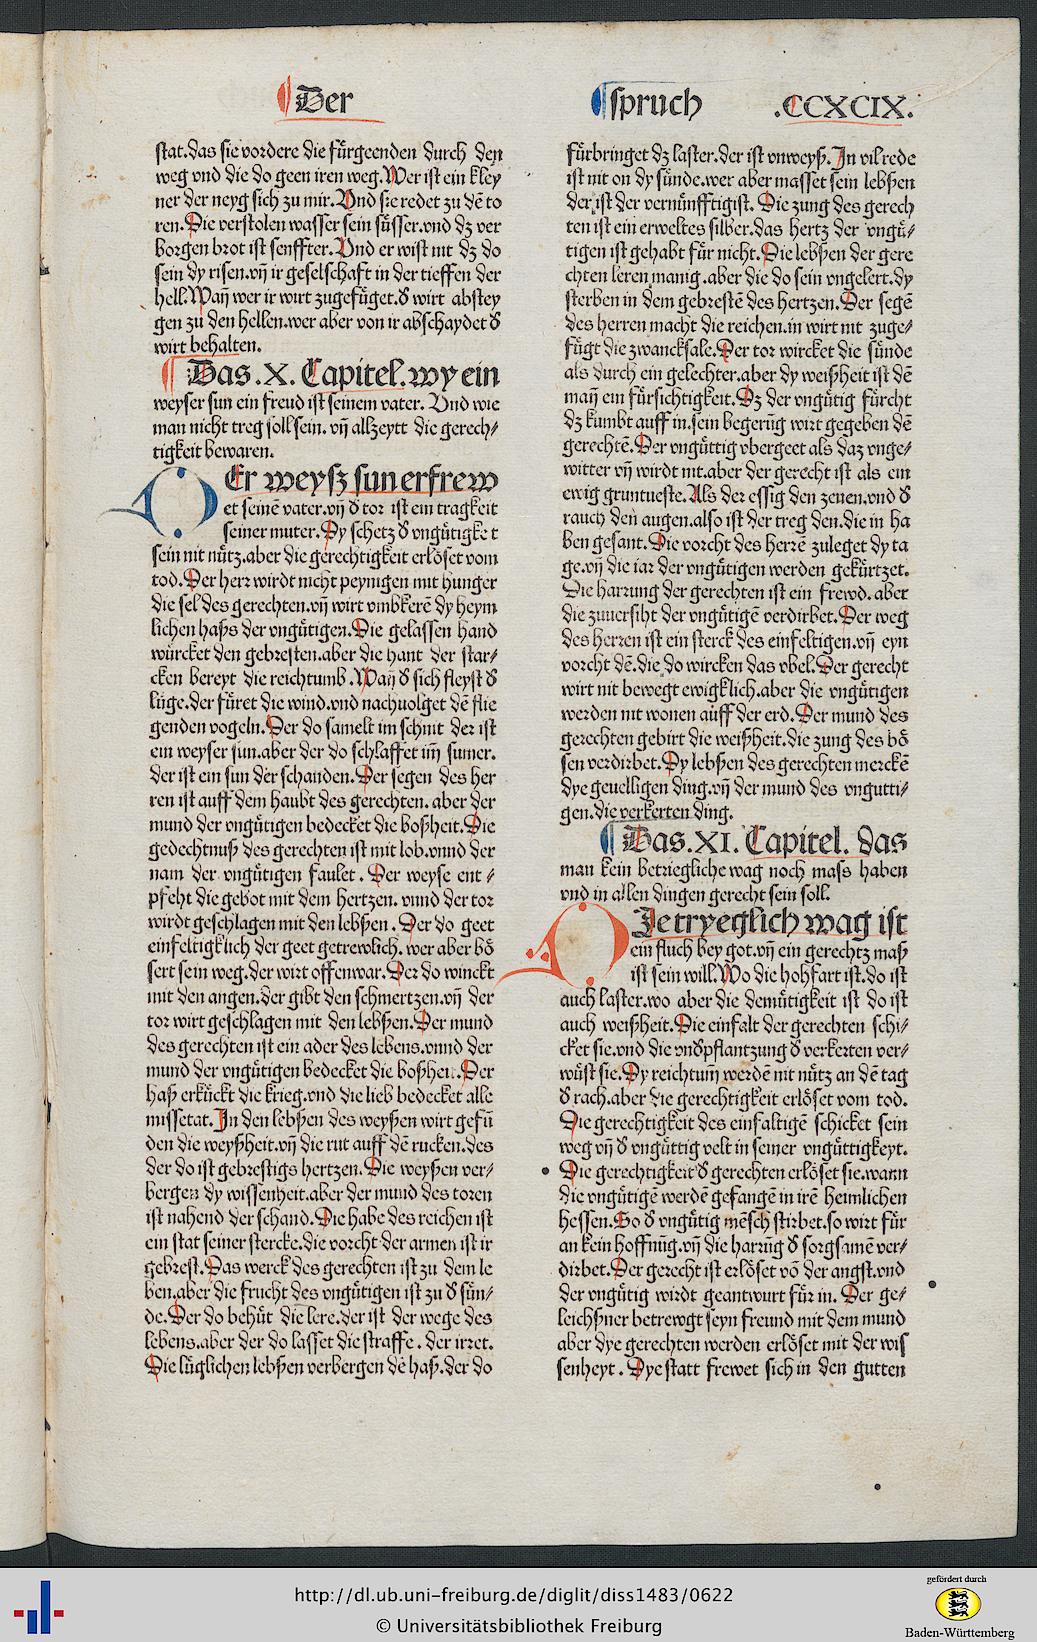 Der
spruch
.CCXCIX.
stat.das sie vordere die fürgeenden durch den
weg vnd die do geen iren weg.Wer ist ein kley
ner der neyg sich zu mir.Vnd sie redet zu dē to
ren.Die verstolen wasser sein süsser.vnd dz ver
borgen brot ist senffter.Vnd er wist nit dz do
sein dy risen.vn̄ ir geselschaft in der tieffen der
hell.Wan̄ wer ir wirt zugefüget.d̕ wirt abstey
gen zu den hellen.wer aber von ir abschaydet d̕
wirt behalten.
Das.X.Capitel.wy ein
weyser sun ein freud ist seinem vater. Vnd wie
man nicht treg soll sein. vn̄ allzeytt die gerech⸗
tigkeit bewaren.
DEr weysz sun erfrew
et seinē vater.vn̄ d̕ tor ist ein tragkeit
seiner muter.Dy schetz d̕ vngütigke t
sein nit nütz.aber die gerechtigkeit erlöset vom
tod.Der herr wirdt nicht peynigen mit hunger
die sel des gerechten.vn̄ wirt vmbkerē dy heym
lichen haßs der vngütigen.Die gelassen hand
würcket den gebresten.aber die hant der star⸗
cken bereyt die reichtumb.Wan̄ d̕ sich fleyst d̕
lüge.der füret die wind.vnd nachuolget dē flie
genden vogeln.Der do samelt im schnit der ist
ein weyser sun.aber der do schlaffet im̄ sumer.
der ist ein sun der schanden.Der segen des her
ren ist auff dem haubt des gerechten. aber der
mund der vngütigen bedecket die boßheit.Die
gedechtnuß des gerechten ist mit lob.vnnd der
nam der vngütigen faulet. Der weyse ent⸗
pfeht die gebot mit dem hertzen. vnnd der tor
wirdt geschlagen mit den lebßen. Der do geet
einfeltigklich der geet getrewlich. wer aber bö
sert sein weg.der wirt offenwar.Der do winckt
mit den augen.der gibt den schmertzen.vn̄ der
tor wirt geschlagen mit den lebßen.Der mund
des gerechten ist ein ader des lebens.vnnd der
mund der vngütigen bedecket die boßheit.Der
haß erkückt die krieg.vnd die lieb bedecket alle
missetat.In den lebßen des weyßen wirt gefu̅
den die weyßheit.vn̄ die rut auff dē rucken.des
der do ist gebrestigs hertzen.Die weyßen ver⸗
bergen dy wissenheit.aber der mund des toren
ist nahend der schand.Die habe des reichen ist
ein stat seiner stercke.die vorcht der armen ist ir
gebrest.Das werck des gerechten ist zu dem le
ben.aber die frucht des vngütigen ist zu d̕ sün⸗
de.Der do behüt die lere.der ist der wege des
lebens.aber der do lasset die straffe. der irret.
Die lüglichen lebßen verbergen dē haß.der do
fürbringet dz laster.der ist vnweyß.In vil rede
ist nit on dy sünde.wer aber masset sein lebßen
der ist der vernünfftigist. Die zung des gerech
ten ist ein erweltes silber.das hertz der vngü⸗
tigen ist gehabt für nicht.Die lebßen der gere
chten leren manig.aber die do sein vngelert.dy
sterben in dem gebrestē des hertzen.Der segē
des herren macht die reichen.in wirt nit zuge⸗
fügt die zwancksale.Der tor wircket die sünde
als durch ein gelechter.aber dy weißheit ist dē
man̄ ein fürsichtigkeit.Dz der vngütig fürcht
dz kumbt auff in.sein begerūg wirt gegeben dē
gerechtē.Der vngüttig vbergeet als daz vnge⸗
witter vn̄ wirdt nit.aber der gerecht ist als ein
ewig gruntueste.Als der essig den zenen.vnd d̕
rauch den augen.also ist der treg den.die in ha
ben gesant.Die vorcht des herrē zuleget dy ta
ge.vn̄ die iar der vngütigen werden gekürtzet.
Die harrung der gerechten ist ein frewd. aber
die zuuersiht der vngütigē verdirbet.Der weg
des herren ist ein sterck des einfeltigen.vn̄ eyn
vorcht dē.die do wircken das vbel.Der gerecht
wirt nit bewegt ewigklich.aber die vngütigen
werden nit wonen auff der erd.Der mund des
gerechten gebirt die weißheit.die zung des bö
sen verdirbet.Dy lebßen des gerechten merckē
dye geuelligen ding.vn̄ der mund des vngutti⸗
gen.die verkerten ding.
Das.XI.Capitel.das
man kein betriegliche wag noch mass haben
vnd in allen dingen gerecht sein soll.
DJe tryeglich wag ist
ein fluch bey got.vn̄ ein gerechtz maß
ist sein will.Wo die hohfart ist.do ist
auch laster.wo aber die demütigkeit ist do ist
auch weißheit.Die einfalt der gerechten schi⸗
cket sie.vnd die vnd̕pflantzung d̕ verkerten ver⸗
wüst sie.Dy reichtum̄ werdē nit nütz an dē tag
d̕ rach.aber die gerechtigkeit erlöset vom tod.
Die gerechtigkeit des einfaltigē schicket sein
weg vn̄ d̕ vngüttig velt in seiner vngüttigkeyt.
Die gerechtigkeit d̕ gerechten erlöset sie.wann
die vngütigē werdē gefangē in irē heimlichen
hessen.So d̕ vngütig mēsch stirbet.so wirt für
an kein hoffnūg.vn̄ die harrūg d̕ sorgsamē ver⸗
dirbet.Der gerecht ist erlöset vō der angst.vnd
der vngütig wirdt geantwurt für in. Der ge⸗
leichßner betrewgt seyn freund mit dem mund
aber dye gerechten werden erlöset mit der wis
senheyt. Dye statt frewet sich in den gutten
http://dl.ub.uni-freiburg.de/diglit/diss1483/0622
© Universitätsbibliothek Freiburg
gefördert durch
Baden-Württemberg